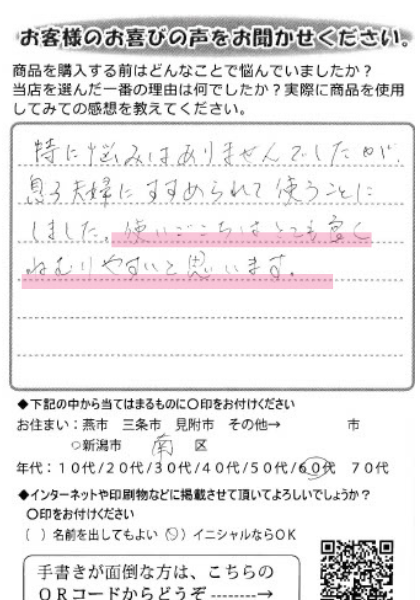 お客様のお喜びの声をお聞かせください。
商品を購入する前はどんなことで悩んでいましたか？
当店を選んだ一番の理由は何でしたか？実際に商品を使用
してみての感想を教えてください。
特に悩みはありませんでしたが、
息子夫婦にすすめられて使うことに
しました。使いごこちはとても良く
ねむりやすいと思います。
◆下記の中から当てはまるものに〇印をお付けください
お住まい：燕市 三条市 見附市 その他→ 市
○新潟市 南 区
年代：１０代/２０代/３０代/４０代/５０代/６０代 ７０代
◆インターネットや印刷物などに掲載させて頂いてよろしいでしょうか？
〇印をお付けください
( ) 名前を出してもよい (○) イニシャルならＯＫ
手書きが面倒な方は、こちらの
ＱＲコードからどうぞ --------→